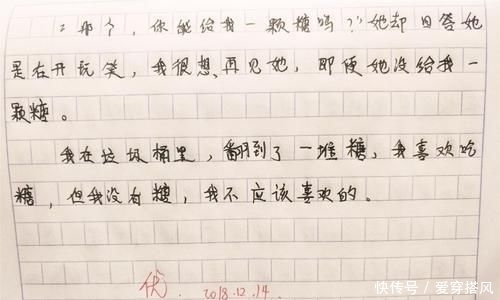 ：那个，你能给我一颗糖吗？”她却回答她
是在开玩笑，我很想再见她，即便她没给我一
颗糖。
我在垃圾桶里，翻到了一堆糖，我喜欢吃
糖，但我没有糖，我不应该喜欢的。
优 2018.12.14
快传号／爱穿搭风